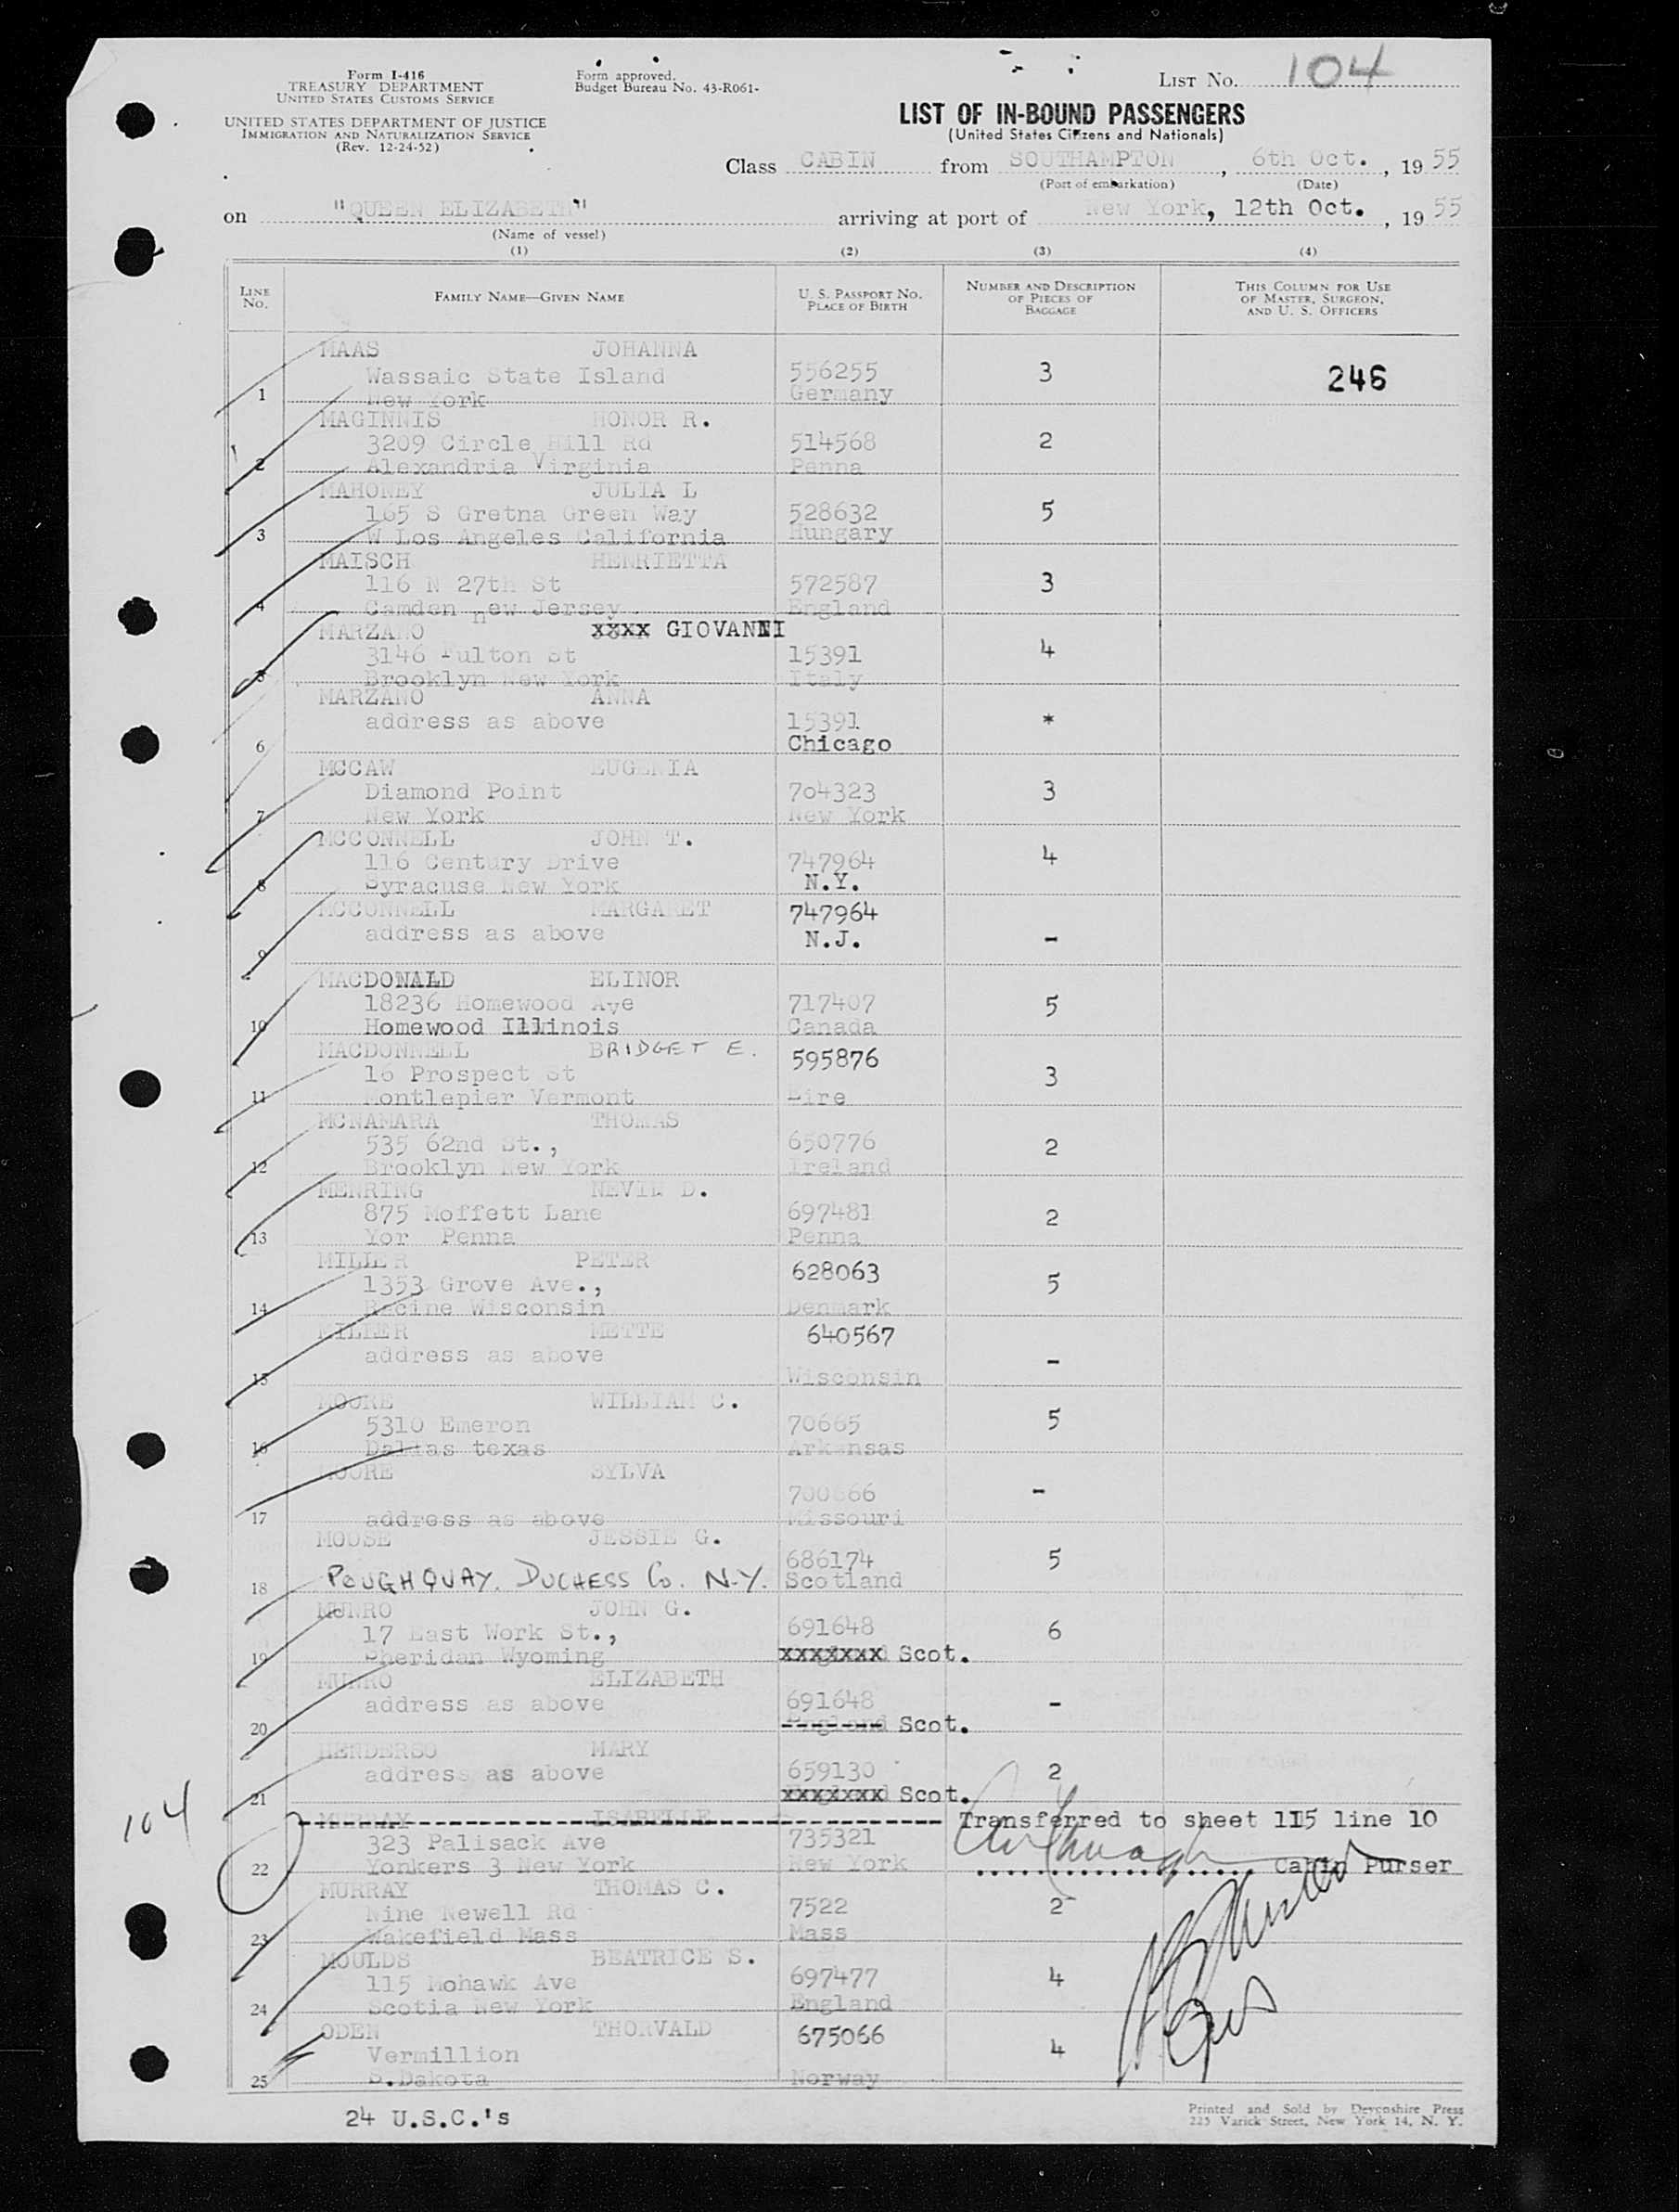 Form I-416
TREASURY DEPARTMENT
UNITED STATES CUSTOMS SERVICE
UNITED STATES DEPARTMENT OF JUSTICE
IMMIGRATION AND NATURALIZATION SERVICE
(Rev. 12-24-52)
Form approved.
Budget Bureau No. 43-R061-
LIST No. 104
LIST OF IN-BOUND PASSENGERS
(United States Citizens and Nationals)
Class CABIN from SOUTHAMPTON, 6th Oct., 1955
(Port of embarkation) (Date)
on "QUEEN ELIZABETH" arriving at port of New York, 12th Oct., 1955
(Name of vessel)
(1) (2) (3) (4)
LINE No. FAMILY NAME—GIVEN NAME U. S. PASSPORT NO. PLACE OF BIRTH NUMBER AND DESCRIPTION OF PIECES OF BAGGAGE THIS COLUMN FOR USE OF MASTER, SURGEON, AND U. S. OFFICERS
MAAS JOHANNA
Wassaic State Island 556255 3 246
1 New York Germany
MAGINNIS HONOR R.
3209 Circle Hill Rd 514568 2
2 Alexandria Virginia Penna
MAHONEY JULIA L
165 S Gretna Green Way 528632 5
3 W Los Angeles California Hungary
MAISCH HENRIETTA
116 N 27th St 572587 3
4 Camden new Jersey England
MARZANO xxxx GIOVANNI
3146 Fulton St 15391 4
5 Brooklyn New York Italy
MARZANO ANNA
address as above 15391 *
6 Chicago
MCCAW EUGENIA
Diamond Point 704323 3
7 New York New York
MCCONNELL JOHN T.
116 Century Drive 747964 4
8 Syracuse New York N.Y.
MCCONNELL MARGARET 747964
address as above N.J. -
9
MACDONALD ELINOR
18236 Homewood Aye 717407 5
10 Homewood Illinois Canada
MACDONNELL BRIDGET E. 595876
16 Prospect St 3
11 Montlepier Vermont Eire
MCNAMARA THOMAS
535 62nd St., 650776 2
12 Brooklyn New York Ireland
MENRING NEVIN D.
875 Moffett Lane 697481 2
13 Yor Penna Penna
MILLER PETER 628063
1353 Grove Ave., 5
14 Racine Wisconsin Denmark
MILLER METTE 640567
address as above -
15 Wisconsin
MOORE WILLIAM C.
5310 Emeron 70665 5
16 Dallas texas Arkansas
MOORE SYLVA
700666 -
17 address as above Missouri
MOOSE JESSIE G.
686174 5
18 POUGHQUAY. DUCHESS Co. N.Y. Scotland
MUNRO JOHN G.
17 East Work St., 691648 6
19 Sheridan Wyoming xxxxxxx Scot.
MUNRO ELIZABETH
address as above 691648 -
20 England Scot.
HENDERSO MARY
address as above 659130 2
21 xxxxxxx Scot.
104
MURRAY ISABELLE Transferred to sheet 115 line 10
323 Palisack Ave 735321
22 Yonkers 3 New York New York Cabin Purser
MURRAY THOMAS C.
Nine Newell Rd 7522 2
23 Wakefield Mass Mass
MOULDS BEATRICE S.
115 Mohawk Ave 697477 4
24 Scotia New York England
ODEN THORVALD 675066
Vermillion 4
25 S.Dakota Norway
24 U.S.C.'s
Printed and Sold by Devonshire Press
225 Varick Street, New York 14, N. Y.